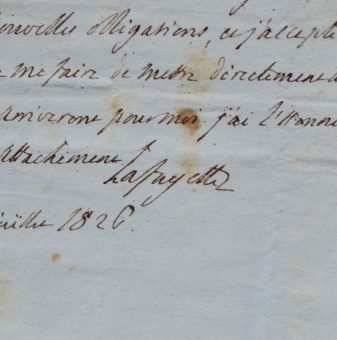 nouvelles obligations, et j'accepte
me faire de mettre directement
arriveront pour moi. j'ai l'honne
attachement
Lafayette
uillet 1826